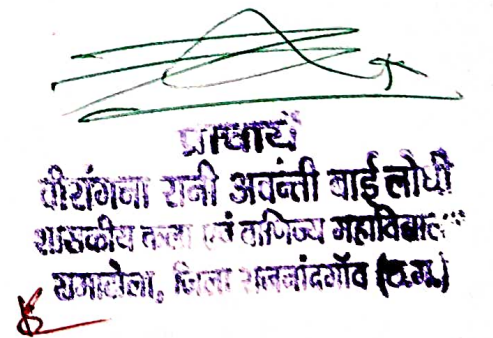 प्राचार्य
वीरांगना रानी अवंन्ती बाई लोधी
शासकीय कला एवं वाणिज्य महाविद्यालय
जिला राजनांदगाँव (छ.ग.)